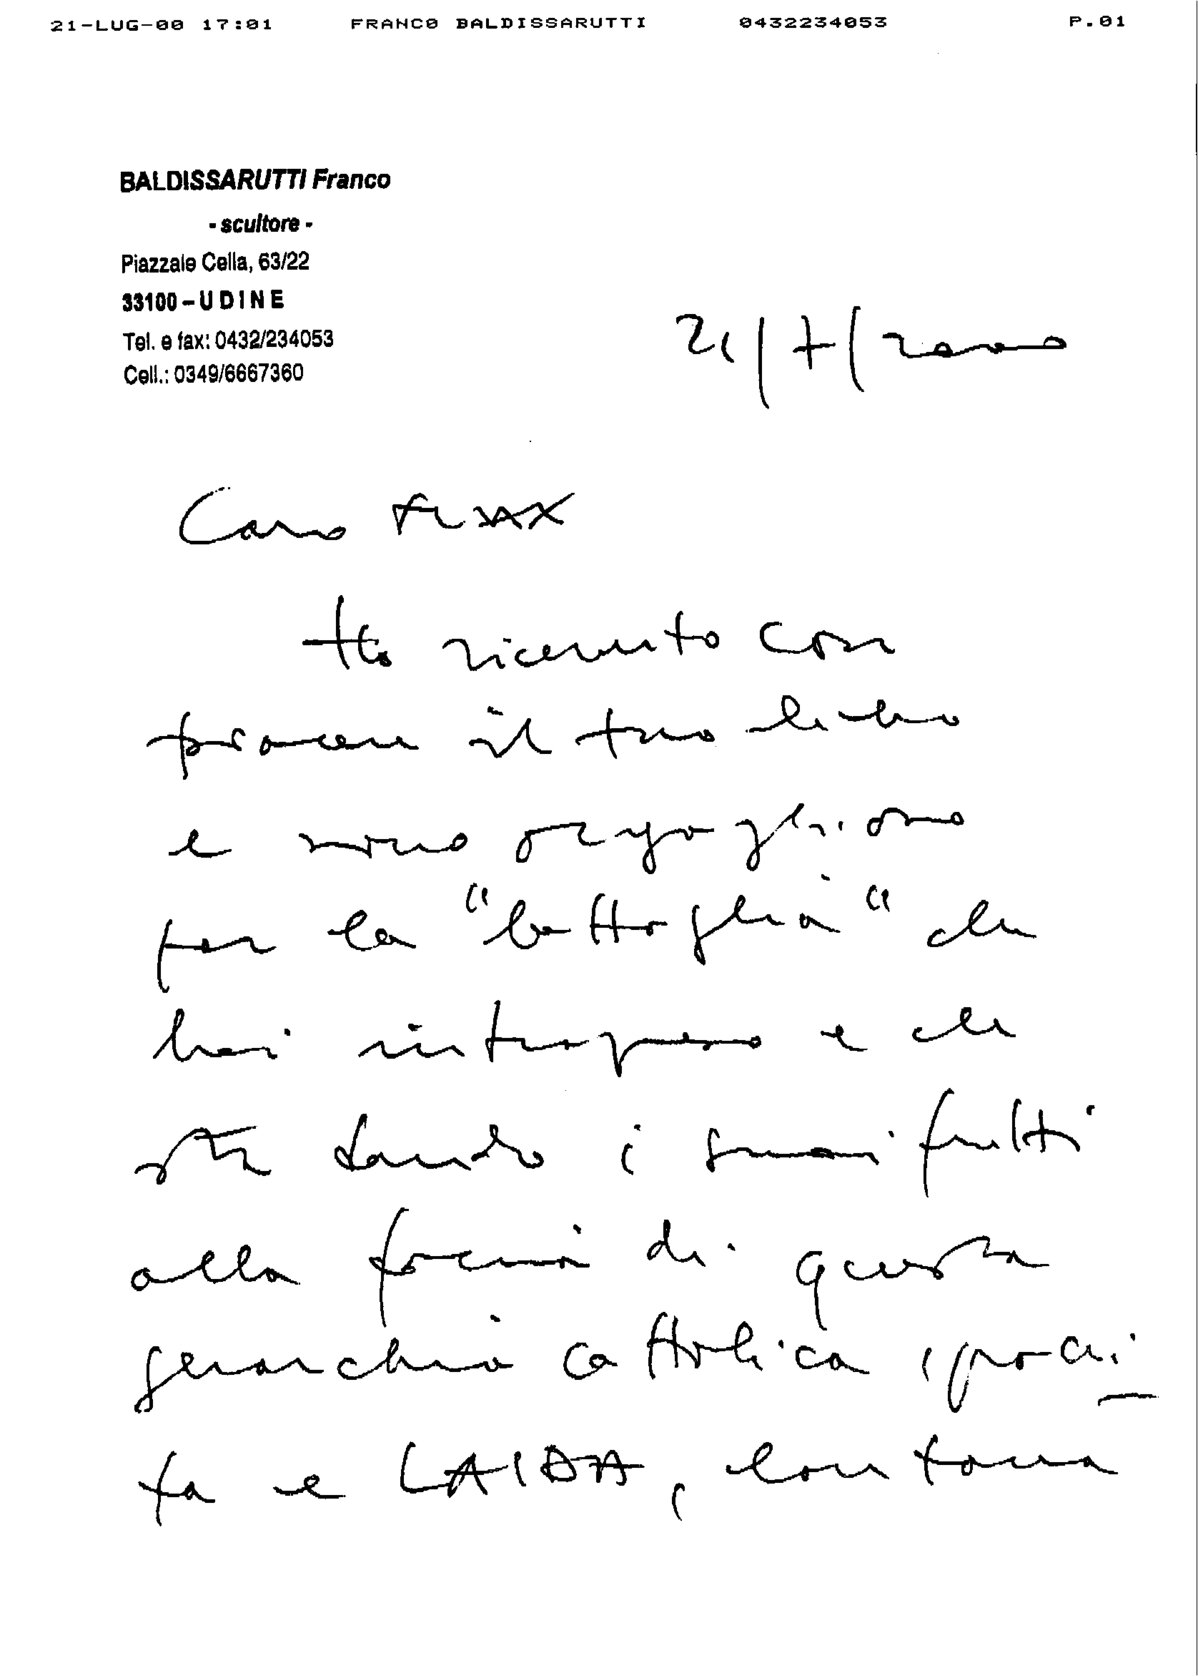 21-LUG-00 17:01 FRANCO BALDISSARUTTI 0432234053 P.01
BALDISSARUTTI Franco
- scultore -
Piazzale Cella, 63/22
33100 – UDINE
Tel. e fax: 0432/234053
Cell.: 0349/6667360
21/7/2000
Caro
Ho ricevuto con
piacere il tuo libro
e sono orgoglioso
per la "battaglia" che
hai intrapreso e che
sta dando i suoi frutti
alla faccia di questa
gerarchia cattolica ipocri
ta e LAIDA, lontana